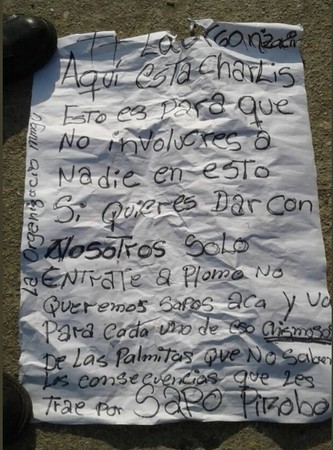 Aquí esta Charlis
Esto es para que
No involucres a
Nadie en esto
Si quieres Dar con
Nosotros Solo
Entrate a Plomo No
Queremos Sapos aca y
Para cada uno de eso chismoso
De Las Palmitas que No Saben
Las consecuencias que Les
Trae por SAPO Pirobo
La Organizacio